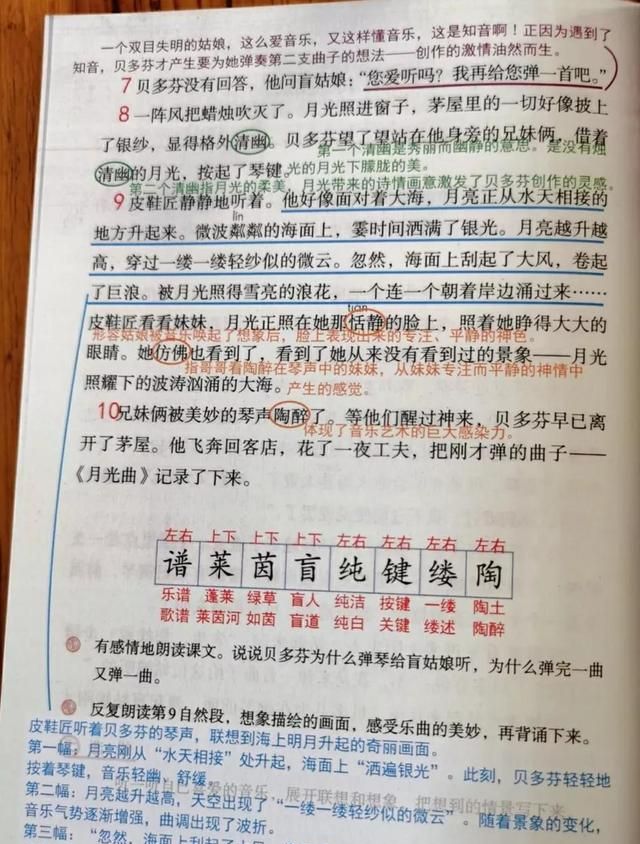 一个双目失明的姑娘，这么爱音乐，又这样懂音乐，这是知音啊！正因为遇到了
知音，贝多芬才产生要为她弹奏第二支曲子的想法——创作的激情油然而生。
7 贝多芬没有回答，他问盲姑娘：“您爱听吗？我再给您弹一首吧。”
8 一阵风把蜡烛吹灭了。月光照进窗子，茅屋里的一切好像披上
了银纱，显得格外清幽。贝多芬望了望站在他身旁的兄妹俩，借着
第一个清幽是秀丽而幽静的意思。是没有烛
清幽的月光，按起了琴键。
光的月光下朦胧的美。
第二个清幽指月光的柔美，月光带来的诗情画意激发了贝多芬创作的灵感。
9 皮鞋匠静静地听着。他好像面对着大海，月亮正从水天相接的
lín
地方升起来。微波粼粼的海面上，霎时间洒满了银光。月亮越升越
高，穿过一缕一缕轻纱似的微云。忽然，海面上刮起了大风，卷起
了巨浪。被月光照得雪亮的浪花，一个连一个朝着岸边涌过来……
tián
皮鞋匠看看妹妹，月光正照在她那恬静的脸上，照着她睁得大大的
形容姑娘被音乐唤起了想象后，脸上表现出来的专注、平静的神色。
眼睛。她仿佛也看到了，看到了她从来没有看到过的景象——月光
指哥哥看着陶醉在琴声中的妹妹，从妹妹专注而平静的神情中
照耀下的波涛汹涌的大海。
产生的感觉。
10 兄妹俩被美妙的琴声陶醉了。等他们醒过神来，贝多芬早已离
体现了音乐艺术的巨大感染力。
开了茅屋。他飞奔回客店，花了一夜工夫，把刚才弹的曲子——
《月光曲》记录了下来。
左右 上下 上下 上下 左右 左右 左右 左右
谱 莱 茵 盲 纯 键 缕 陶
乐谱 蓬莱 绿草 盲人 纯洁 按键 一缕 陶土
歌谱 莱茵河 如茵 盲道 纯白 关键 缕述 陶醉
有感情地朗读课文。说说贝多芬为什么弹琴给盲姑娘听，为什么弹完一曲
又弹一曲。
反复朗读第9自然段，想象描绘的画面，感受乐曲的美妙，再背诵下来。
皮鞋匠听着贝多芬的琴声，联想到海上明月升起的奇丽画面。
第一幅：月亮刚从“水天相接”处升起，海面上“洒遍银光”。此刻，贝多芬轻轻地
按着琴键，音乐轻幽、舒缓。
喜爱的音乐，展开联想和想象，把想到的情景写下来
第二幅：月亮越升越高，天空出现了“一缕一缕轻纱似的微云”。随着景象的变化，
音乐气势逐渐增强，曲调出现了波折。
第三幅：“忽然，海面上刮起了大风